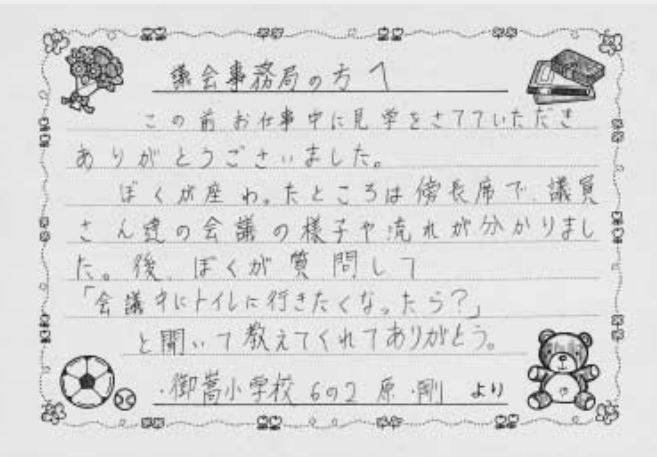 議会事務局の方へ
この前お仕事中に見学をさてていただき
ありがとうございました。
ぼくが座わったところは傍長席で、議員
さん達の会議の様子や流れが分かりまし
た。後、ぼくが質問して
「会議中にトイレに行きたくなったら？」
と聞いて教えてくれてありがとう。
御嵩小学校 6の2 原 剛 より